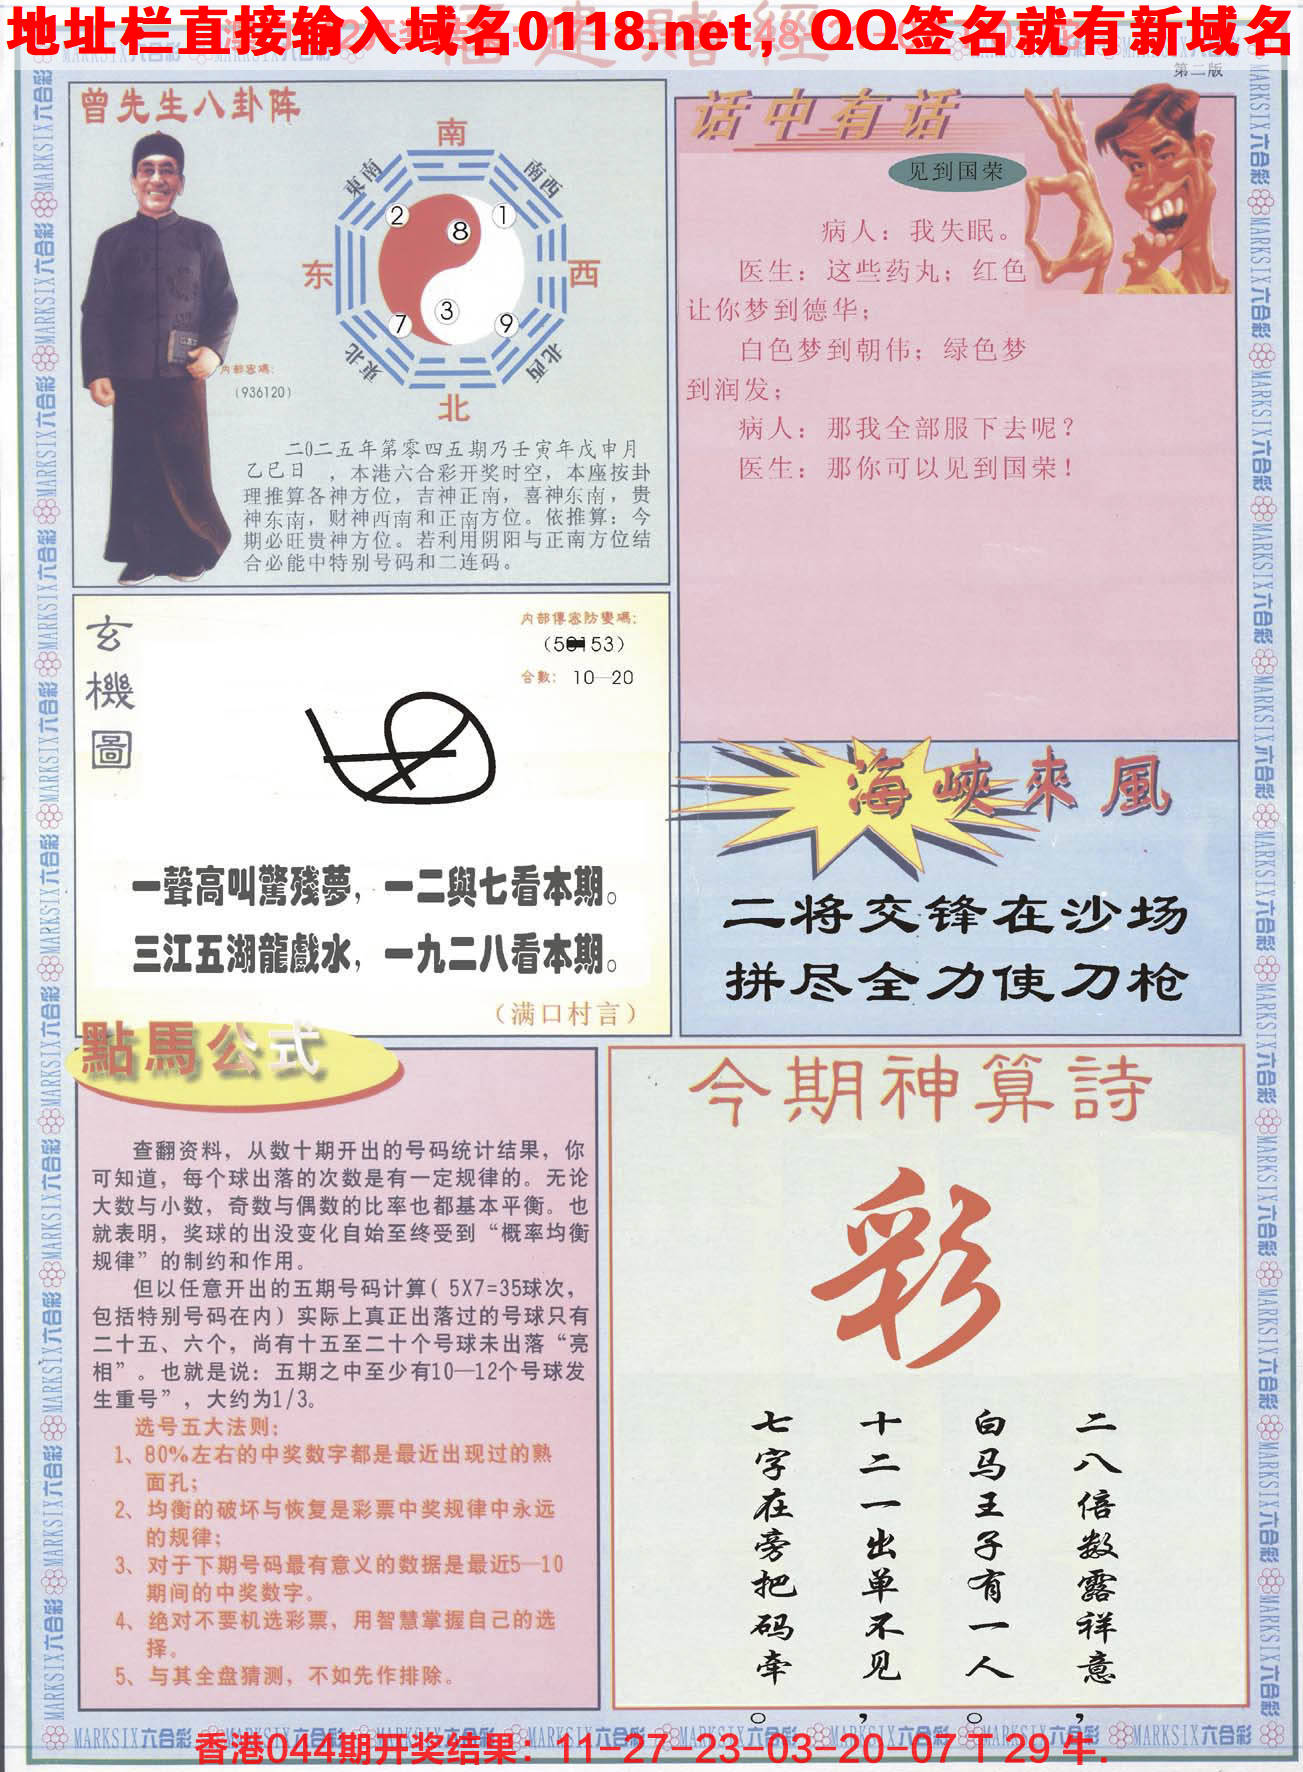 地址栏直接输入域名0118.net，QQ签名就有新域名
第二版
曾先生八卦阵
南
東南
南西
2
8
1
东
西
7
3
9
東北
北西
北
内部密碼：
（936120）
二0二五年第零四五期乃壬寅年戊申月
乙巳日　，本港六合彩开奖时空，本座按卦
理推算各神方位，吉神正南，喜神东南，贵
神东南，财神西南和正南方位。依推算：今
期必旺贵神方位。若利用阴阳与正南方位结
合必能中特别号码和二连码。
话中有话
见到国荣
病人：我失眠。
医生：这些药丸；红色
让你梦到德华；
白色梦到朝伟；绿色梦
到润发；
病人：那我全部服下去呢？
医生：那你可以见到国荣！
玄機圖
内部傳密防變碼：
合數：10—20
一聲高叫驚殘夢，一二與七看本期。
三江五湖龍戲水，一九二八看本期。
（满口村言）
海峽來風
二将交锋在沙场
拼尽全力使刀枪
點馬公式
查翻资料，从数十期开出的号码统计结果，你
可知道，每个球出落的次数是有一定规律的。无论
大数与小数，奇数与偶数的比率也都基本平衡。也
就表明，奖球的出没变化自始至终受到“概率均衡
规律”的制约和作用。
但以任意开出的五期号码计算（5X7=35球次，
包括特别号码在内）实际上真正出落过的号球只有
二十五、六个，尚有十五至二十个号球未出落“亮
相”。也就是说：五期之中至少有10—12个号球发
生重号”，大约为1/3。
选号五大法则：
1、80%左右的中奖数字都是最近出现过的熟
面孔；
2、均衡的破坏与恢复是彩票中奖规律中永远
的规律；
3、对于下期号码最有意义的数据是最近5—10
期间的中奖数字。
4、绝对不要机选彩票，用智慧掌握自己的选
择。
5、与其全盘猜测，不如先作排除。
今期神算詩
彩
二八倍数露祥意，
白马王子有一人。
十二一出单不见，
七字在旁把码牵。
MARKSIX六合彩
香港044期开奖结果：11-27-23-03-20-07 T 29 牛.